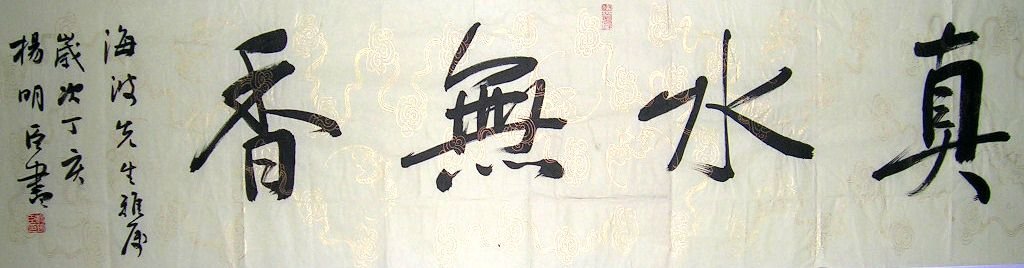 真水無香
海波先生雅属
歲次丁亥
楊明臣書